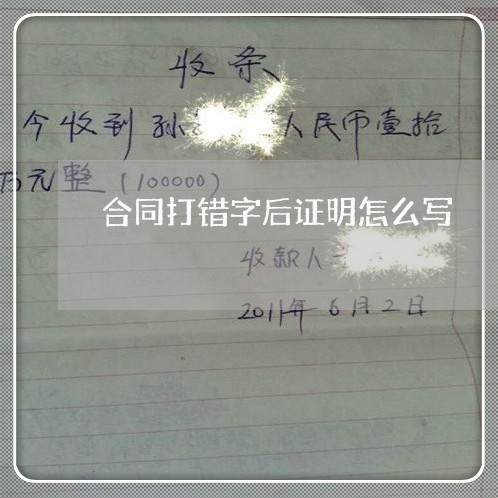 收条
今收到孙 人民币壹拾
万元整（100000）
合同打错字后证明怎么写
收款人
2011年6月2日